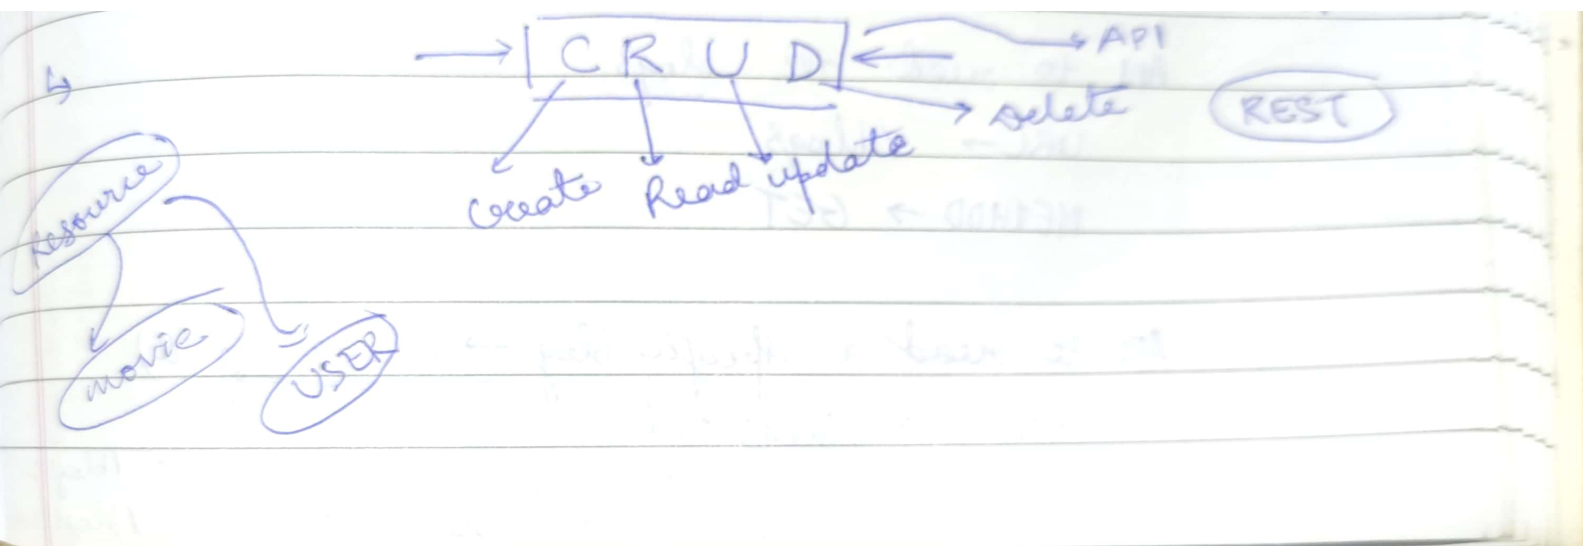 C R U D
API
Delete
REST
Create Read update
Resource
movie
USER